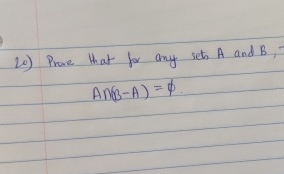 20) Prove that for any sets A and B, -
A∩(B-A) = ϕ